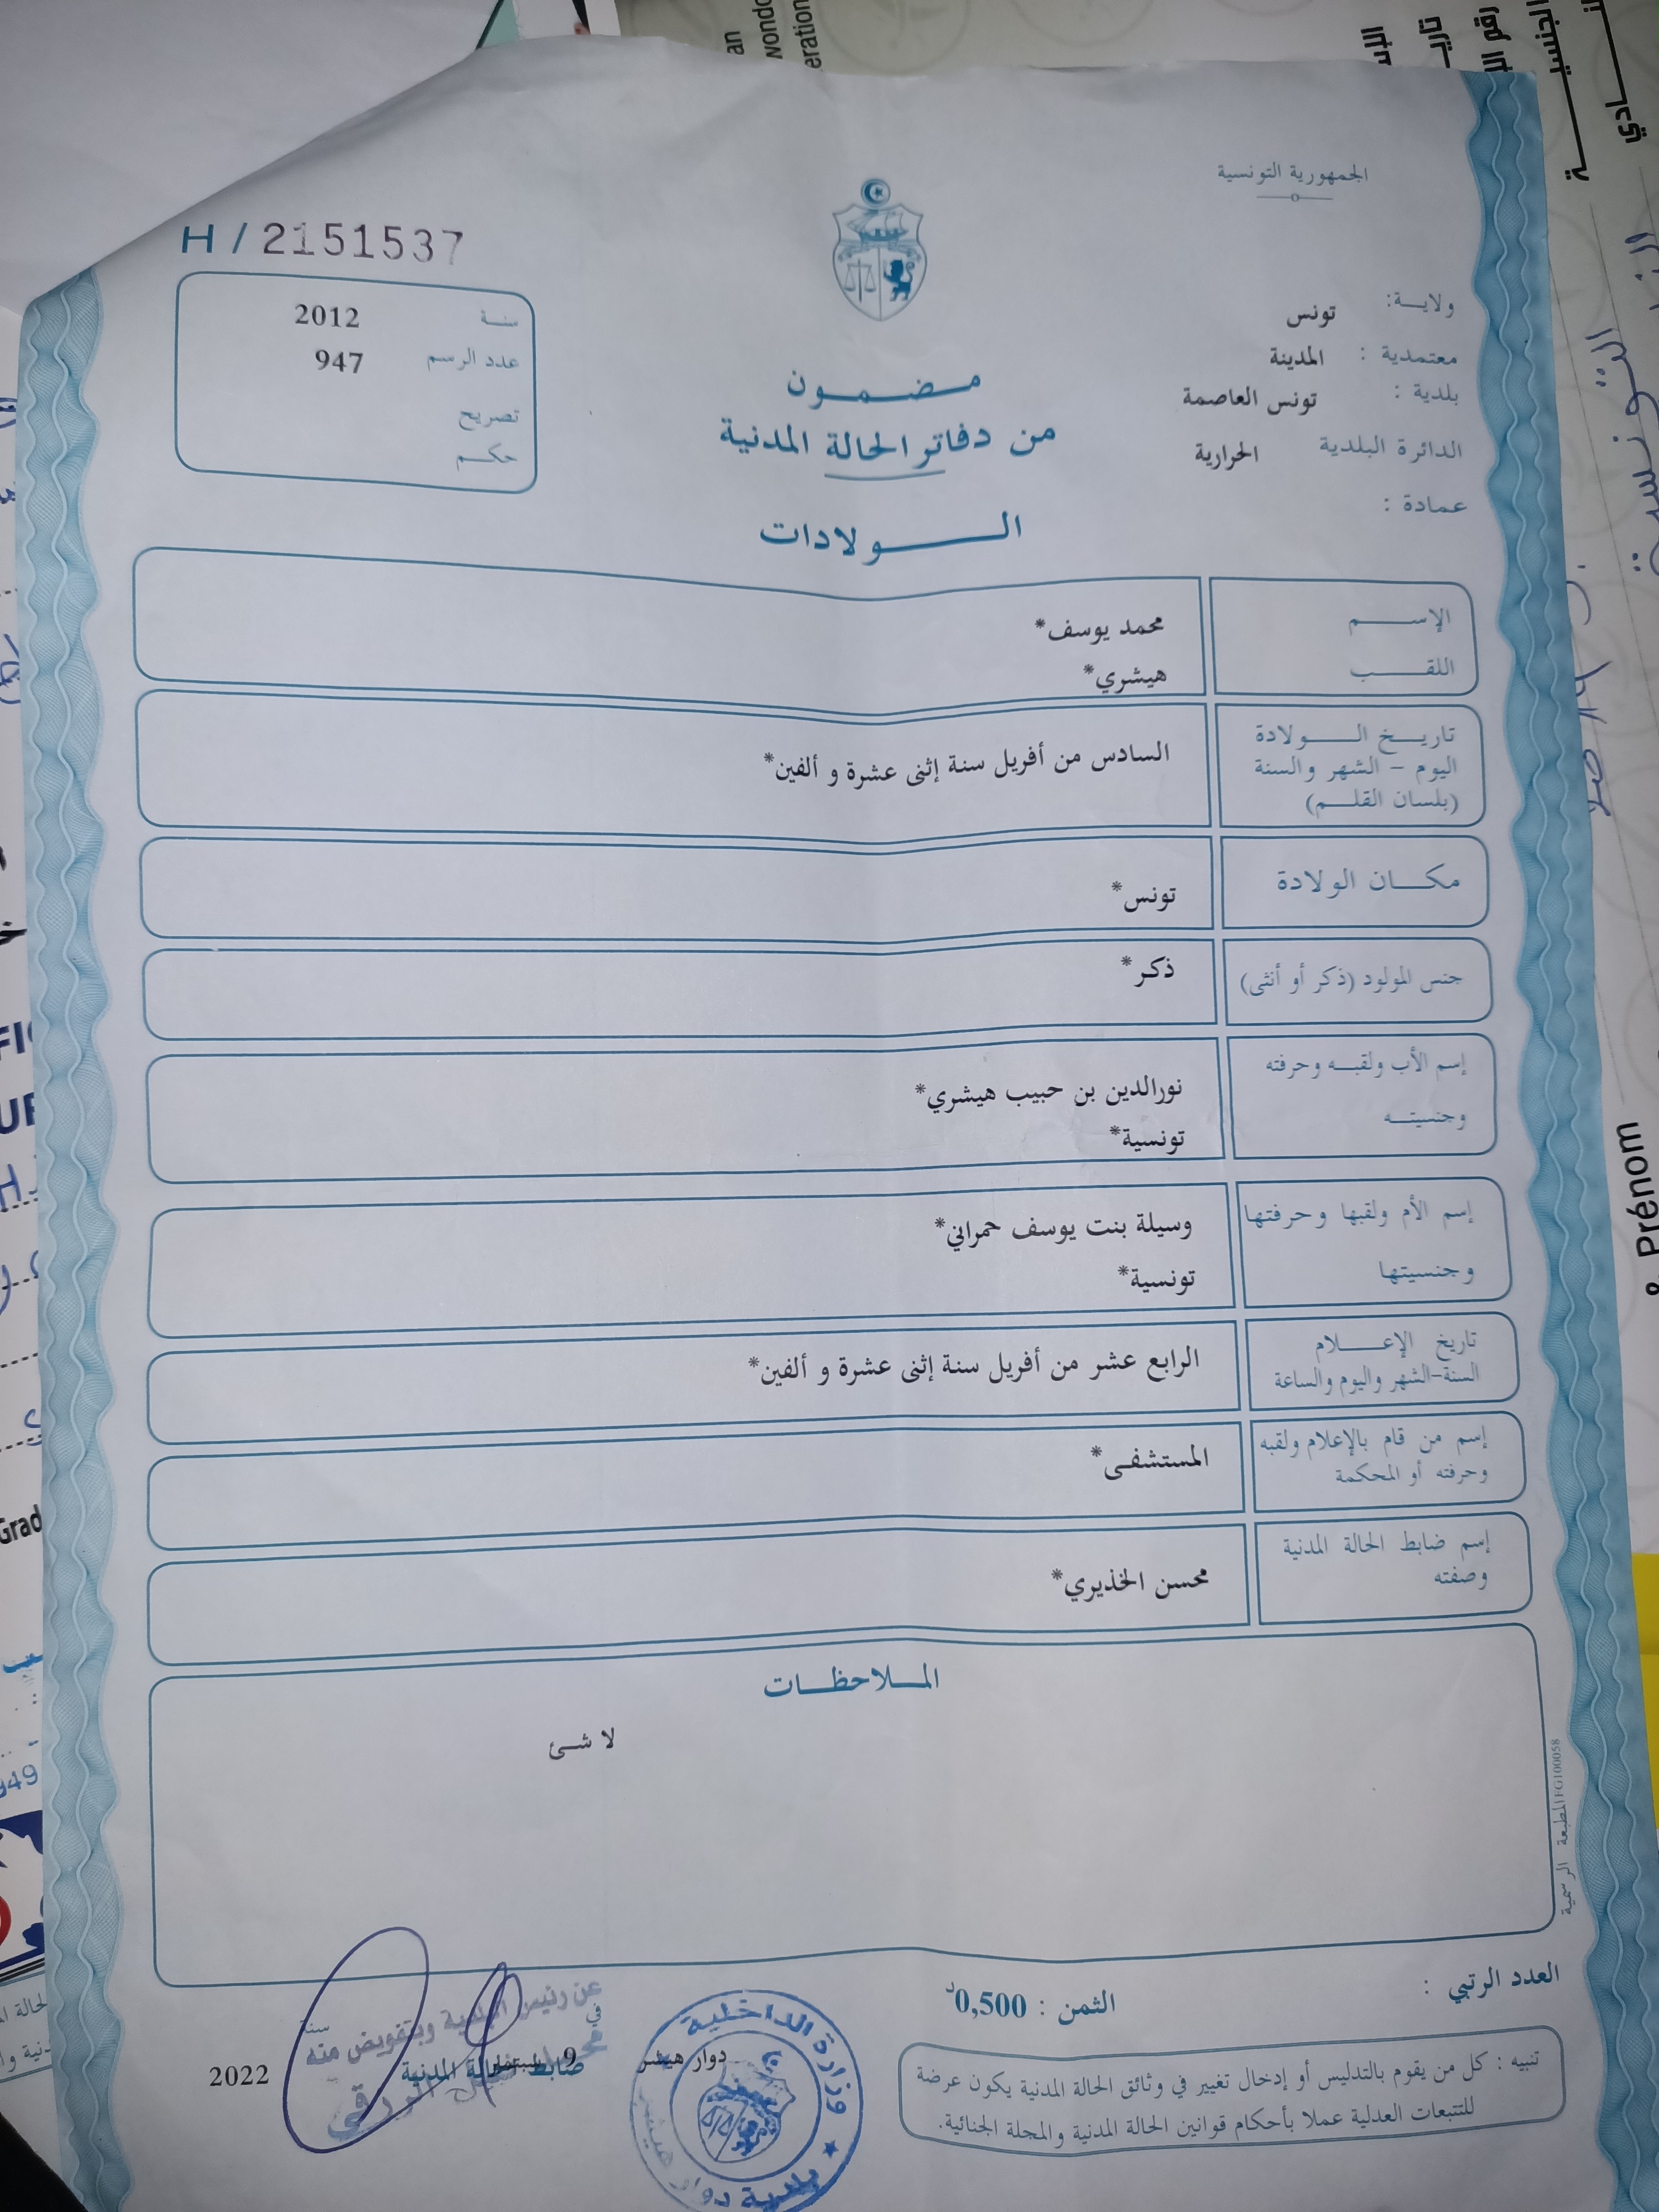 الجمهورية التونسية
H / 2151537
سنة 2012
عدد الرسم 947
تصريح
حكم
ولاية: تونس
معتمدية : المدينة
بلدية : تونس العاصمة
الدائرة البلدية الحرارية
عمادة :
مضمون
من دفاتر الحالة المدنية
الولادات
الإسم محمد يوسف*
اللقب هيشري*
تاريخ الولادة
اليوم - الشهر والسنة
(بلسان القلم)
السادس من أفريل سنة إثنى عشرة و ألفين*
مكان الولادة تونس*
جنس المولود (ذكر أو أنثى) ذكر*
إسم الأب ولقبه وحرفته نورالدين بن حبيب هيشري*
وجنسيته تونسية*
إسم الأم ولقبها وحرفتها وسيلة بنت يوسف حمراني*
وجنسيتها تونسية*
تاريخ الإعلام
السنة-الشهر واليوم والساعة
الرابع عشر من أفريل سنة إثنى عشرة و ألفين*
إسم من قام بالإعلام ولقبه
وحرفته أو المحكمة
المستشفى*
إسم ضابط الحالة المدنية
وصفته
محسن الخذيري*
الملاحظات
لا شئ
المطبعة الرسمية FG100058
العدد الرتبي :
الثمن : 0,500د
تنبيه : كل من يقوم بالتدليس أو إدخال تغيير في وثائق الحالة المدنية يكون عرضة
للتتبعات العدلية عملا بأحكام قوانين الحالة المدنية والمجلة الجنائية.
وزارة الداخلية
بلدية دوار هيشر
دوار هيشر في 9 سبتمبر سنة 2022
عن رئيس البلدية وبتفويض منه
ضابط الحالة المدنية
& Prénom
Grad